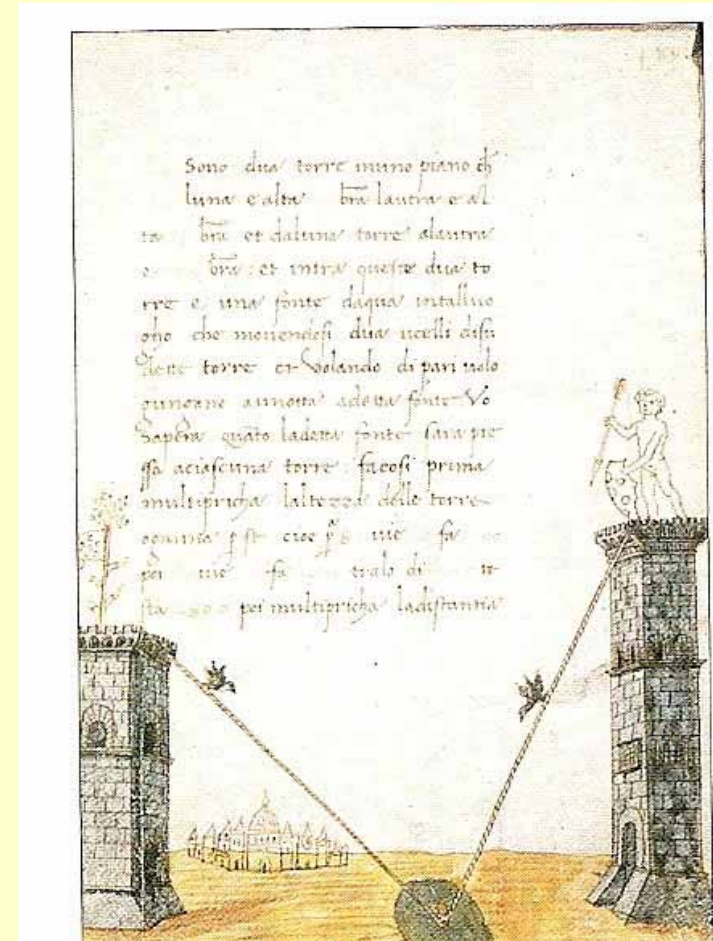 Sono dua torre inuno piano ch
luna e alta bra lautra e al
ta bra et daluna torre alautra
e bra: et intra queste dua to
rre e una fonte daqua intalluo
gho che mouendosi dua ucelli disu
dette torre et volando di pari uolo
giungano adetta fonte Vo
Sapera quato ladetta fonte sara pre
ssa aciascuna torre facosi prima
multipricha laltezza delle torre
ognuna p se cioe uie fa
poi uie fa tralo di
ta poi multipricha ladistantia